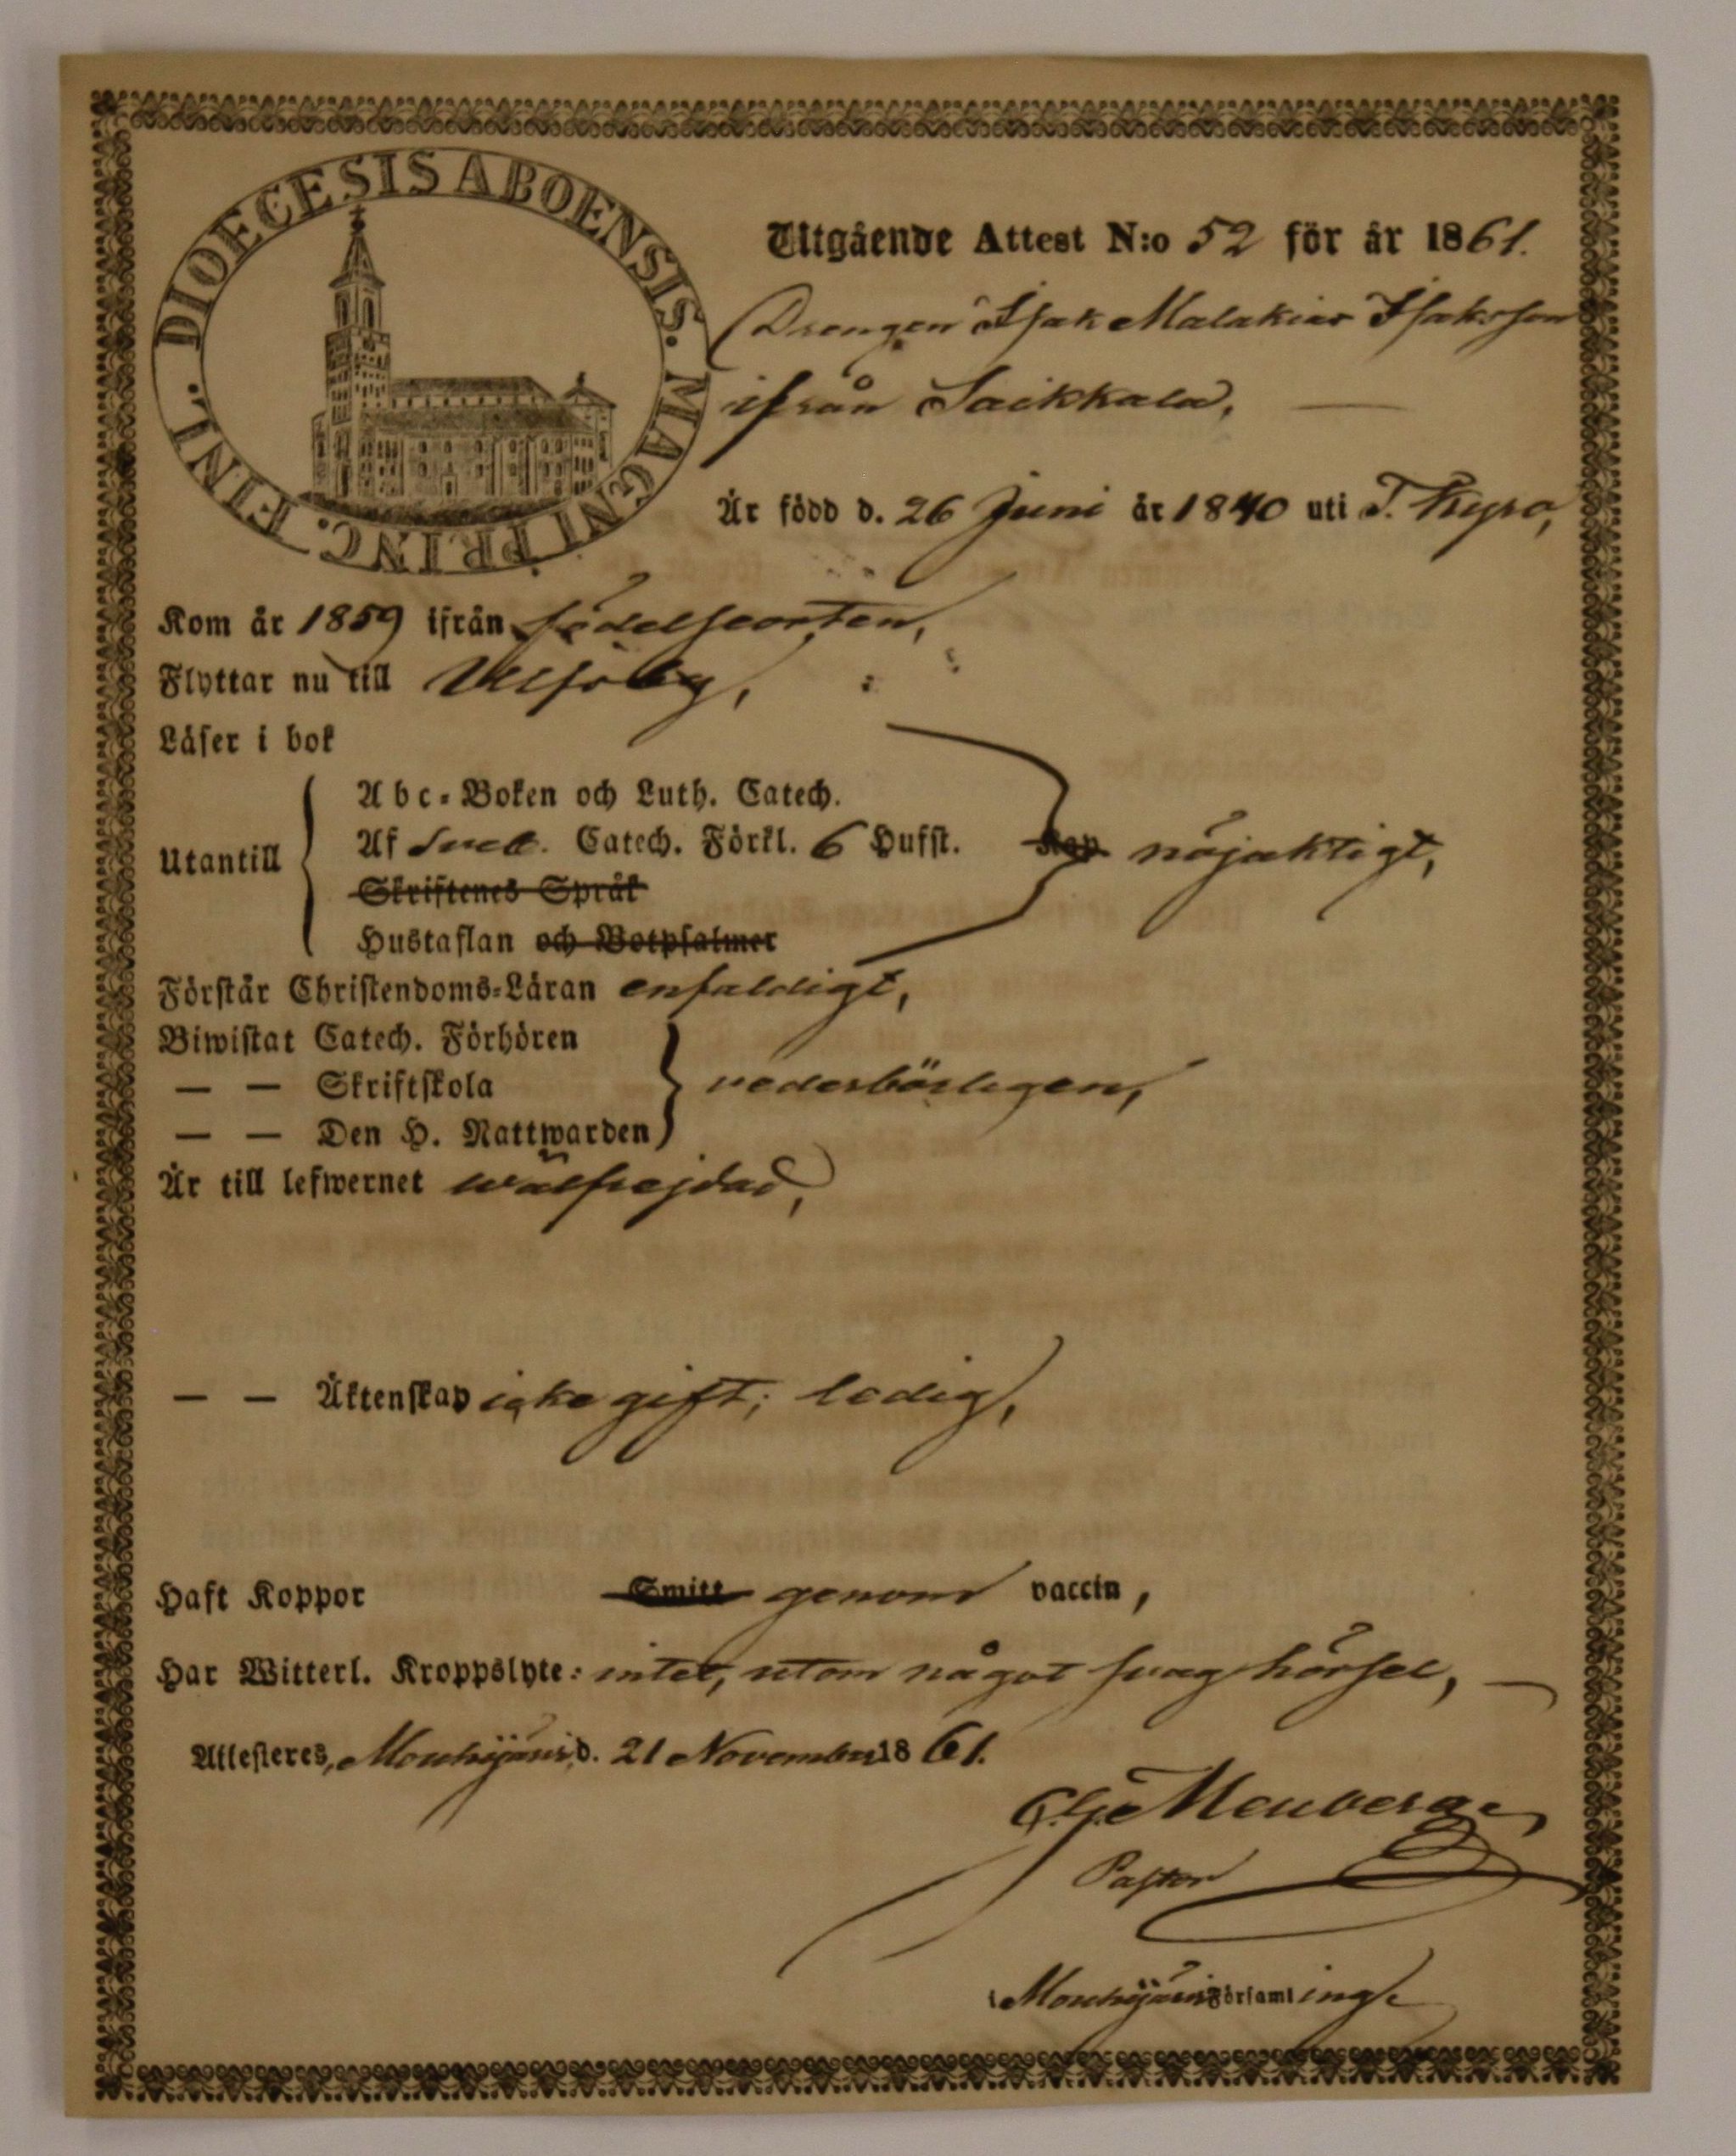 DIOECESIS ABOENSIS. MAGNI PRINC. FINL.
Utgående Attest N:o 52 för år 1861.
Drengen Isak Malakias Isaksson
ifrån Saikkala,
Är född d. 26 Juni år 1840 uti T. Kyro,
Kom år 1859 ifrån födelseorten,
Flyttar nu till Ulfsby,
Läser i bok
Abc-Boken och Luth. Catech.
Utantill Af Sveb. Catech. Förkl. 6 Hufst. Kap nöjaktigt,
Skriftenes Språk
Hustaflan och Botpsalmer
Förstår Christendoms-Läran enfaldigt,
Biwistat Catech. Förhören
— — Skriftskola vederbörligen,
— — Den H. Nattwarden
Är till lefwernet wälfrejdad,
— — Äktenskap icke gift; ledig,
Haft Koppor Smitt genom vaccin,
Har Witterl. Kroppslyte: intet, utom något svag hörsel, —
Attesteras, Mouhijärvi d. 21 November 1861.
Pastor
i Mouhijärvi Församling